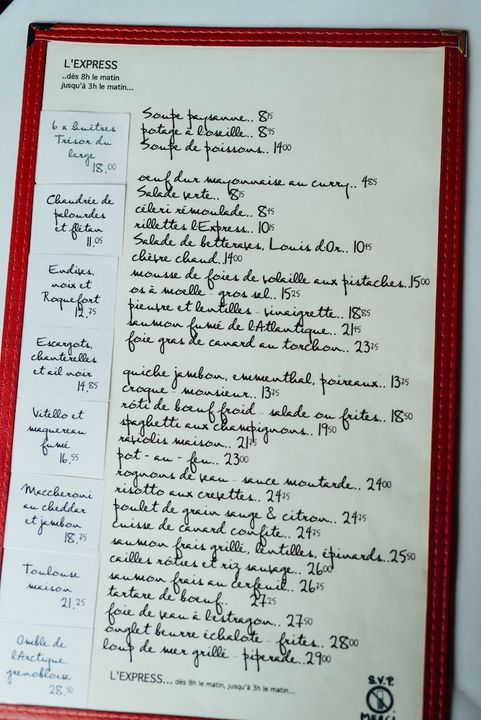 L'EXPRESS
..dès 8h le matin
jusqu'à 3h le matin...
6 x huîtres
Trésor du
large
18.00
Chaudrée de
palourdes
et flétan
11.05
Endives,
noix et
Roquefort
12.75
Escargots,
chanterelles
et ail noir
14.85
Vitello et
maquereau
fumé
16.55
Maccheroni
au cheddar
et jambon
18.75
Toulouse
maison
21.25
Omble de
l'Arctique,
grenobloise
28.50
Soupe paysanne.. 815
potage à l'oseille.. 845
Soupe de poissons.. 1400
oeuf dur mayonnaise au curry.. 485
Salade verte.. 815
céleri rémoulade.. 845
rillettes l'Express.. 1015
Salade de betteraves, Louis d'Or.. 1045
chèvre chaud.. 1400
mousse de foies de volaille aux pistaches.. 1500
os à moelle - gros sel.. 1525
pieuvre et lentilles - vinaigrette.. 1885
saumon fumé de l'Atlantique.. 2145
foie gras de canard au torchon.. 2375
quiche jambon, emmenthal, poireaux.. 1375
croque - monsieur.. 1375
rôti de boeuf froid - salade ou frites.. 1850
spaghetti aux champignons.. 1950
raviolis maison.. 2175
pot - au - feu.. 2300
rognons de veau - sauce moutarde.. 2400
risotto aux crevettes.. 2475
poulet de grain sauge & citron.. 2475
cuisse de canard confite.. 2475
saumon frais grillé, lentilles, épinards.. 2550
cailles rôties et riz sauvage.. 2600
saumon frais au cerfeuil.. 2675
tartare de boeuf.. 2725
foie de veau à l'estragon.. 2750
onglet beurre échalote - frites.. 2800
loup de mer grillé - piperade.. 2900
L'EXPRESS... dès 8h le matin, jusqu'à 3h le matin...
S.V.P.
Merci